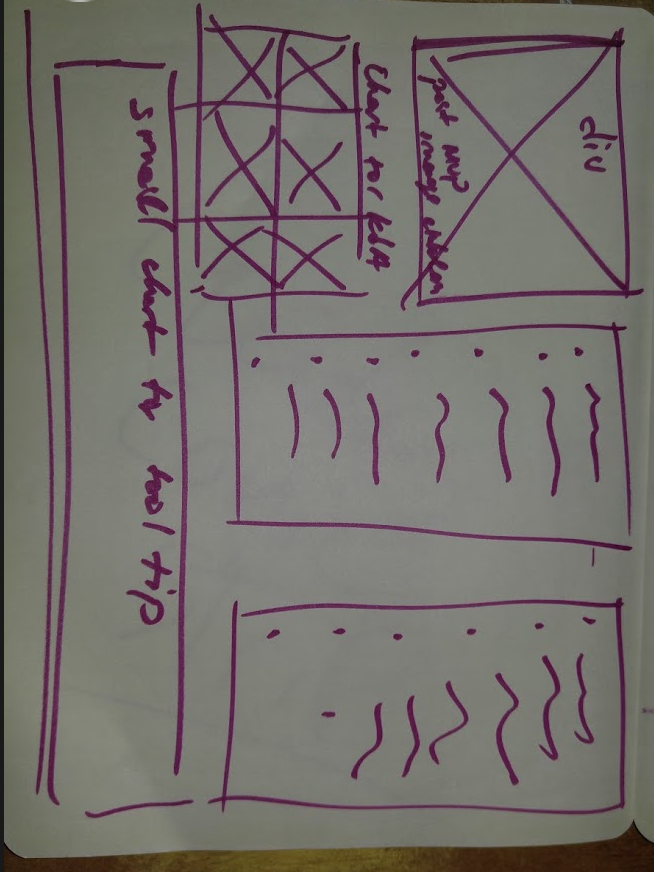 div
post MVP
image
chart for KDA
small chart tv tool tip